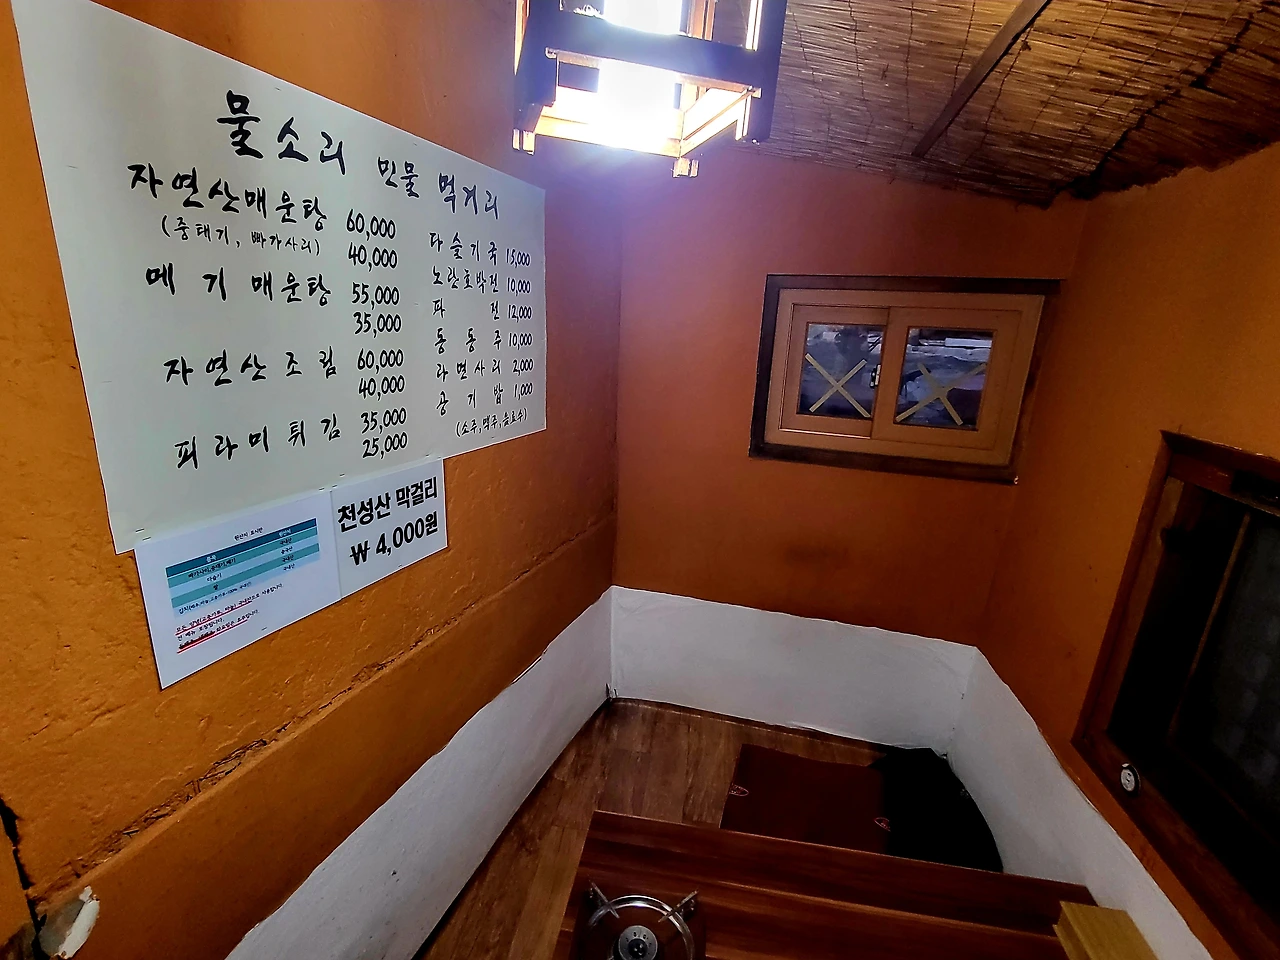 물소리 민물 먹거리
자연산매운탕 60,000
(중태기, 빠가사리) 40,000
메기 매운탕 55,000
35,000
자연산조림 60,000
40,000
피라미튀김 35,000
25,000
다슬기국 15,000
노란호박전 10,000
파전 12,000
동동주 10,000
라면사리 2,000
공기밥 1,000
(소주,맥주,음료수)
천성산 막걸리
₩ 4,000원
원산지 표시판
품목 원산지
국내산
중국산
다슬기 국내산
쌀 국내산